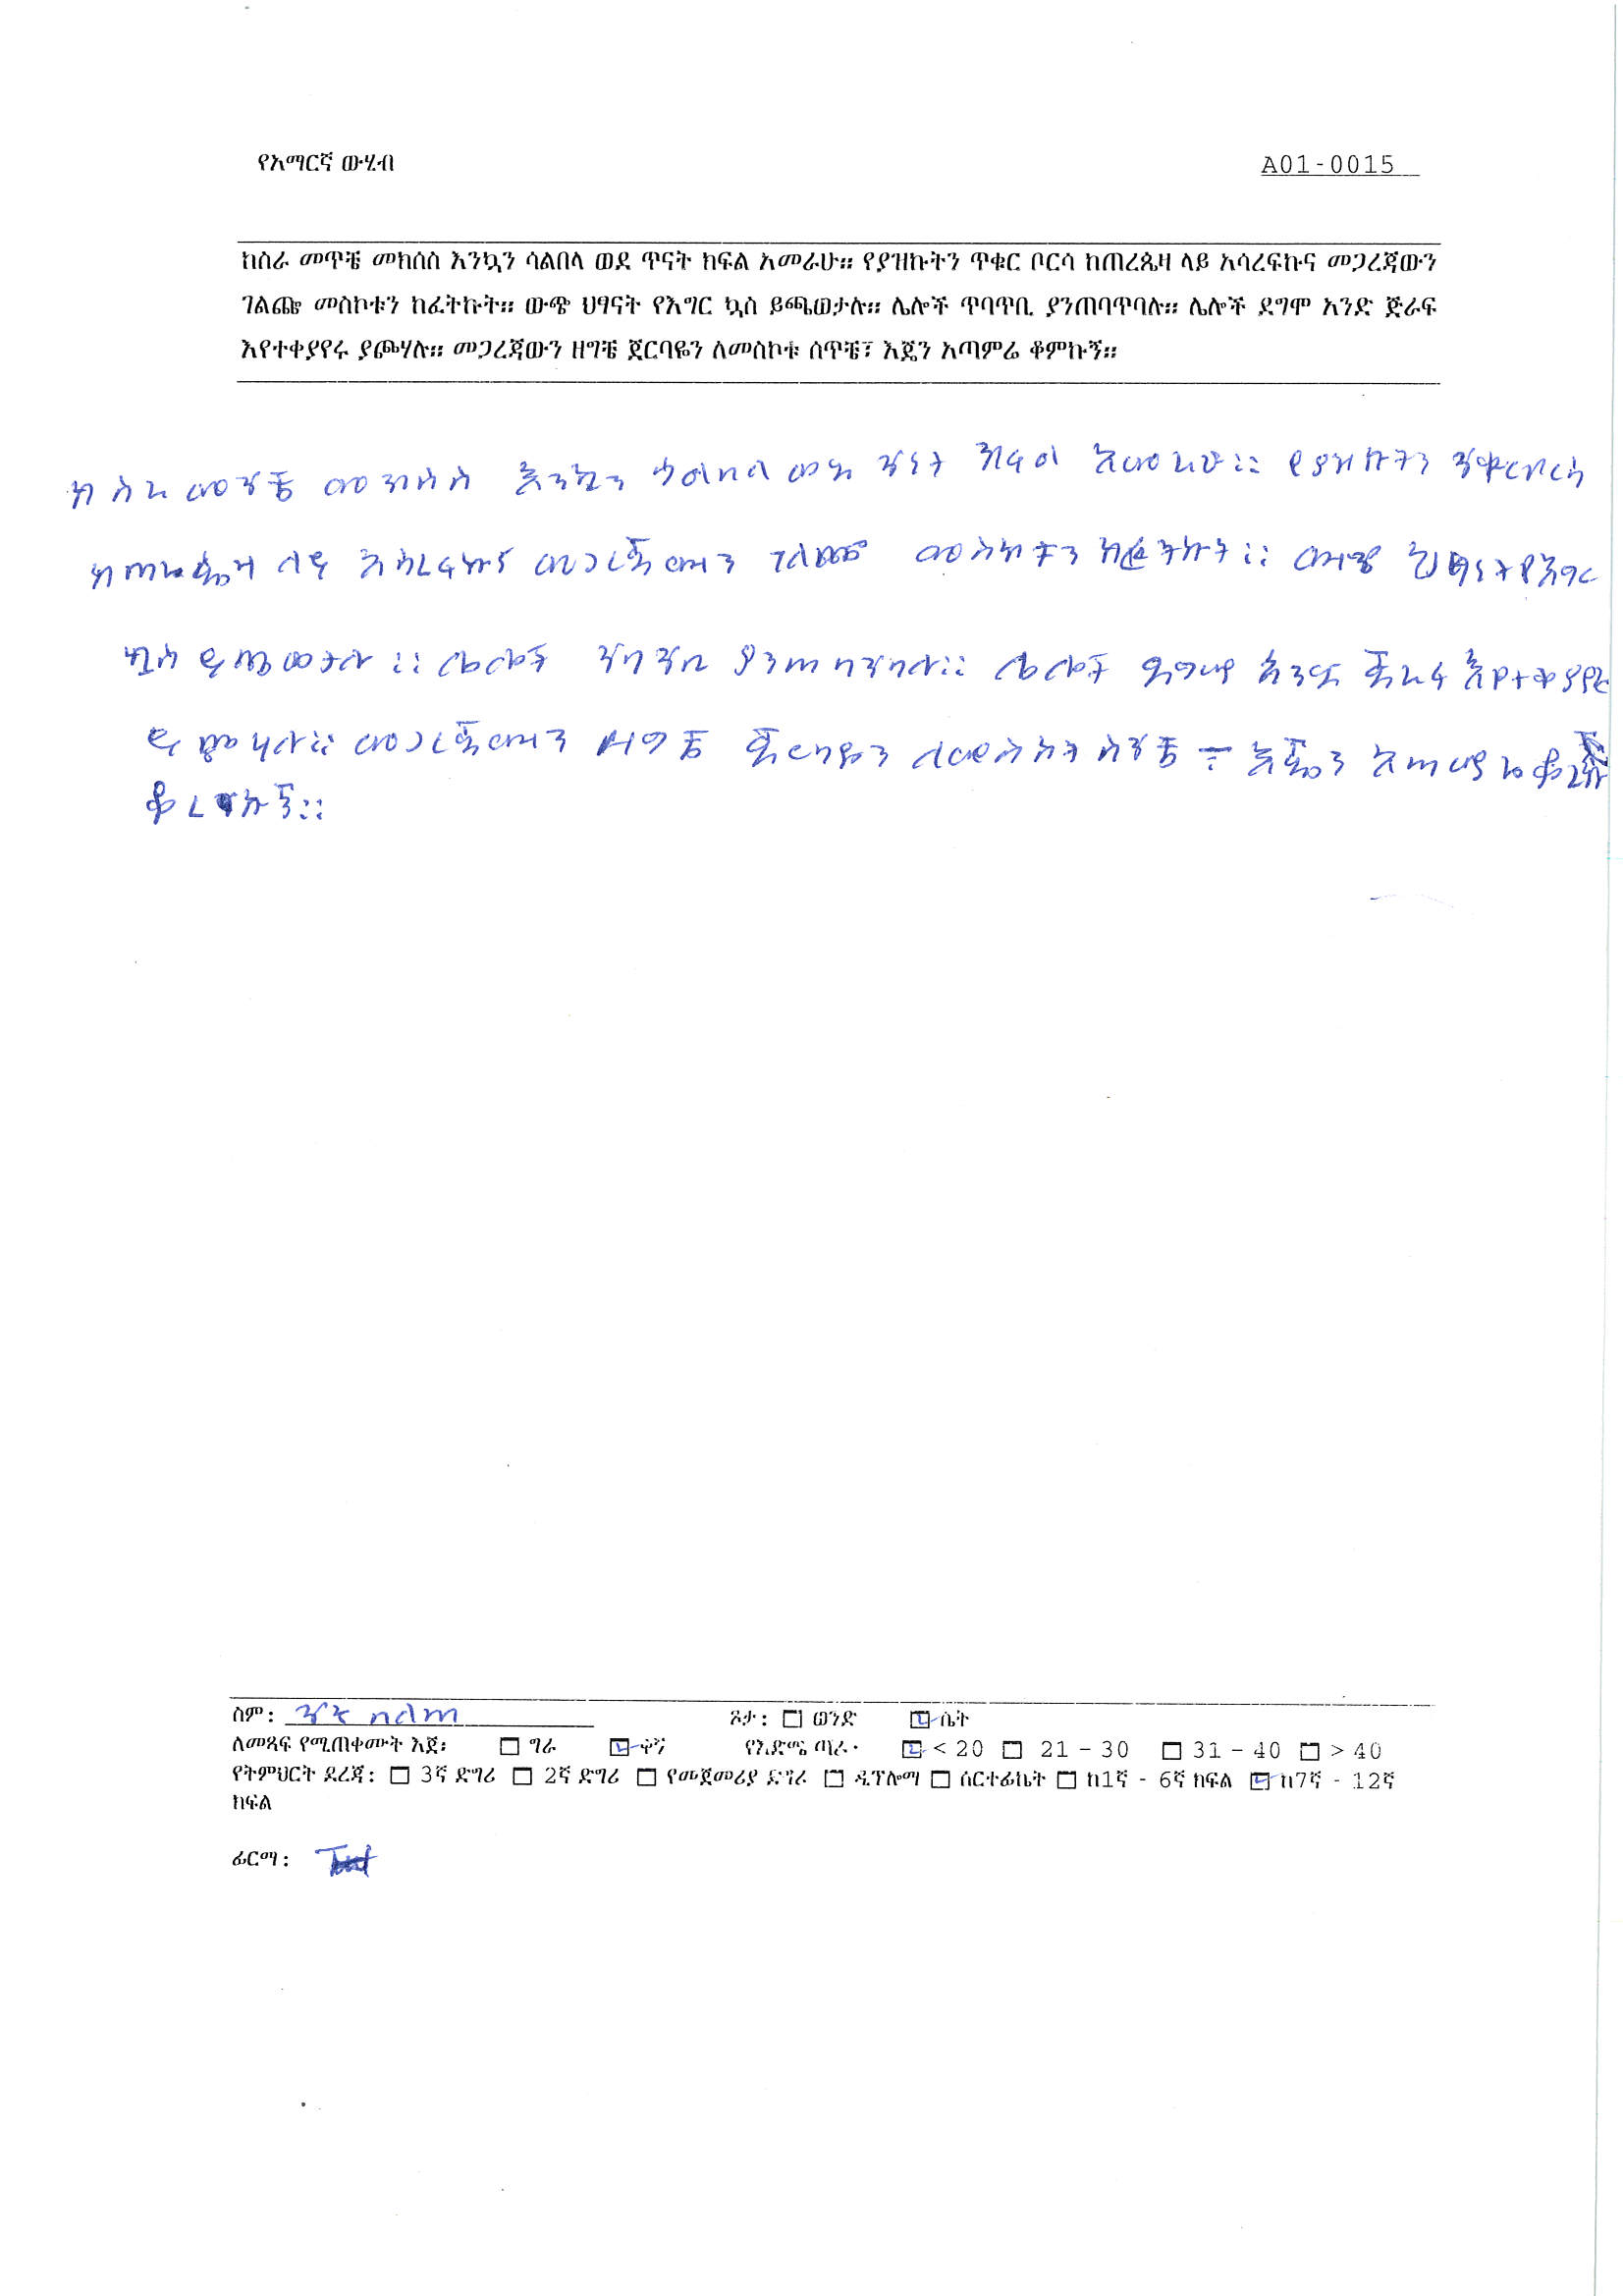 የአማርኛ ውሂብ A01-0015
ከስራ መጥቼ መክሰስ እንኳን ሳልበላ ወደ ጥናት ክፍል አመራሁ። የያዝኩትን ጥቁር ቦርሳ ከጠረጴዛ ላይ አሳረፍኩና መጋረጃውን
ገልጬ መስኮቱን ከፈትኩት። ውጭ ህፃናት የእግር ኳስ ይጫወታሉ። ሌሎች ጥባጥቢ ያንጠባጥባሉ። ሌሎች ደግሞ አንድ ጅራፍ
እየተቀያየሩ ያጮሃሉ። መጋረጃውን ዘግቼ ጀርባዬን ለመስኮቱ ሰጥቼ፣ እጄን አጣምሬ ቆምኩኝ።
ከ ስራ መጥቼ መክሰስ እንኳን ሳልበላ ወደ ጥናት ክፍል አመራሁ። የያዝኩትን ጥቁር ቦርሳ
ከጠረጴዛ ላይ አሳረፍኩና መጋረጃውን ገለጬ መስኮቱን ከፈትኩት። ውጭ ህፃናት የእግር
ኳስ ይጫወታሉ። ሌሎች ጥባጥቢ ያንጠባጥባሉ። ሌሎች ደግሞ አንድ ጅራፍ እየተቀያየሩ
ያጮሃሉ። መጋረጃውን ዘግቼ ጀርባዬን ለመስኮት ስጥቼ ፣ እጄን አጣምሬ
ስም: ጥሩ በለጠ ጾታ: ወንድ ሴት
ለመጻፍ የሚጠቀሙት እጅ: ግራ ቀኝ የእድሜ ጣራ: < 20 21 - 30 31 - 40 > 40
የትምህርት ደረጃ: 3ኛ ድግሪ 2ኛ ድግሪ የመጀመሪያ ድግሪ ዲፕሎማ ሰርተፊኬት ከ1ኛ - 6ኛ ክፍል ከ7ኛ - 12ኛ
ክፍል
ፊርማ: